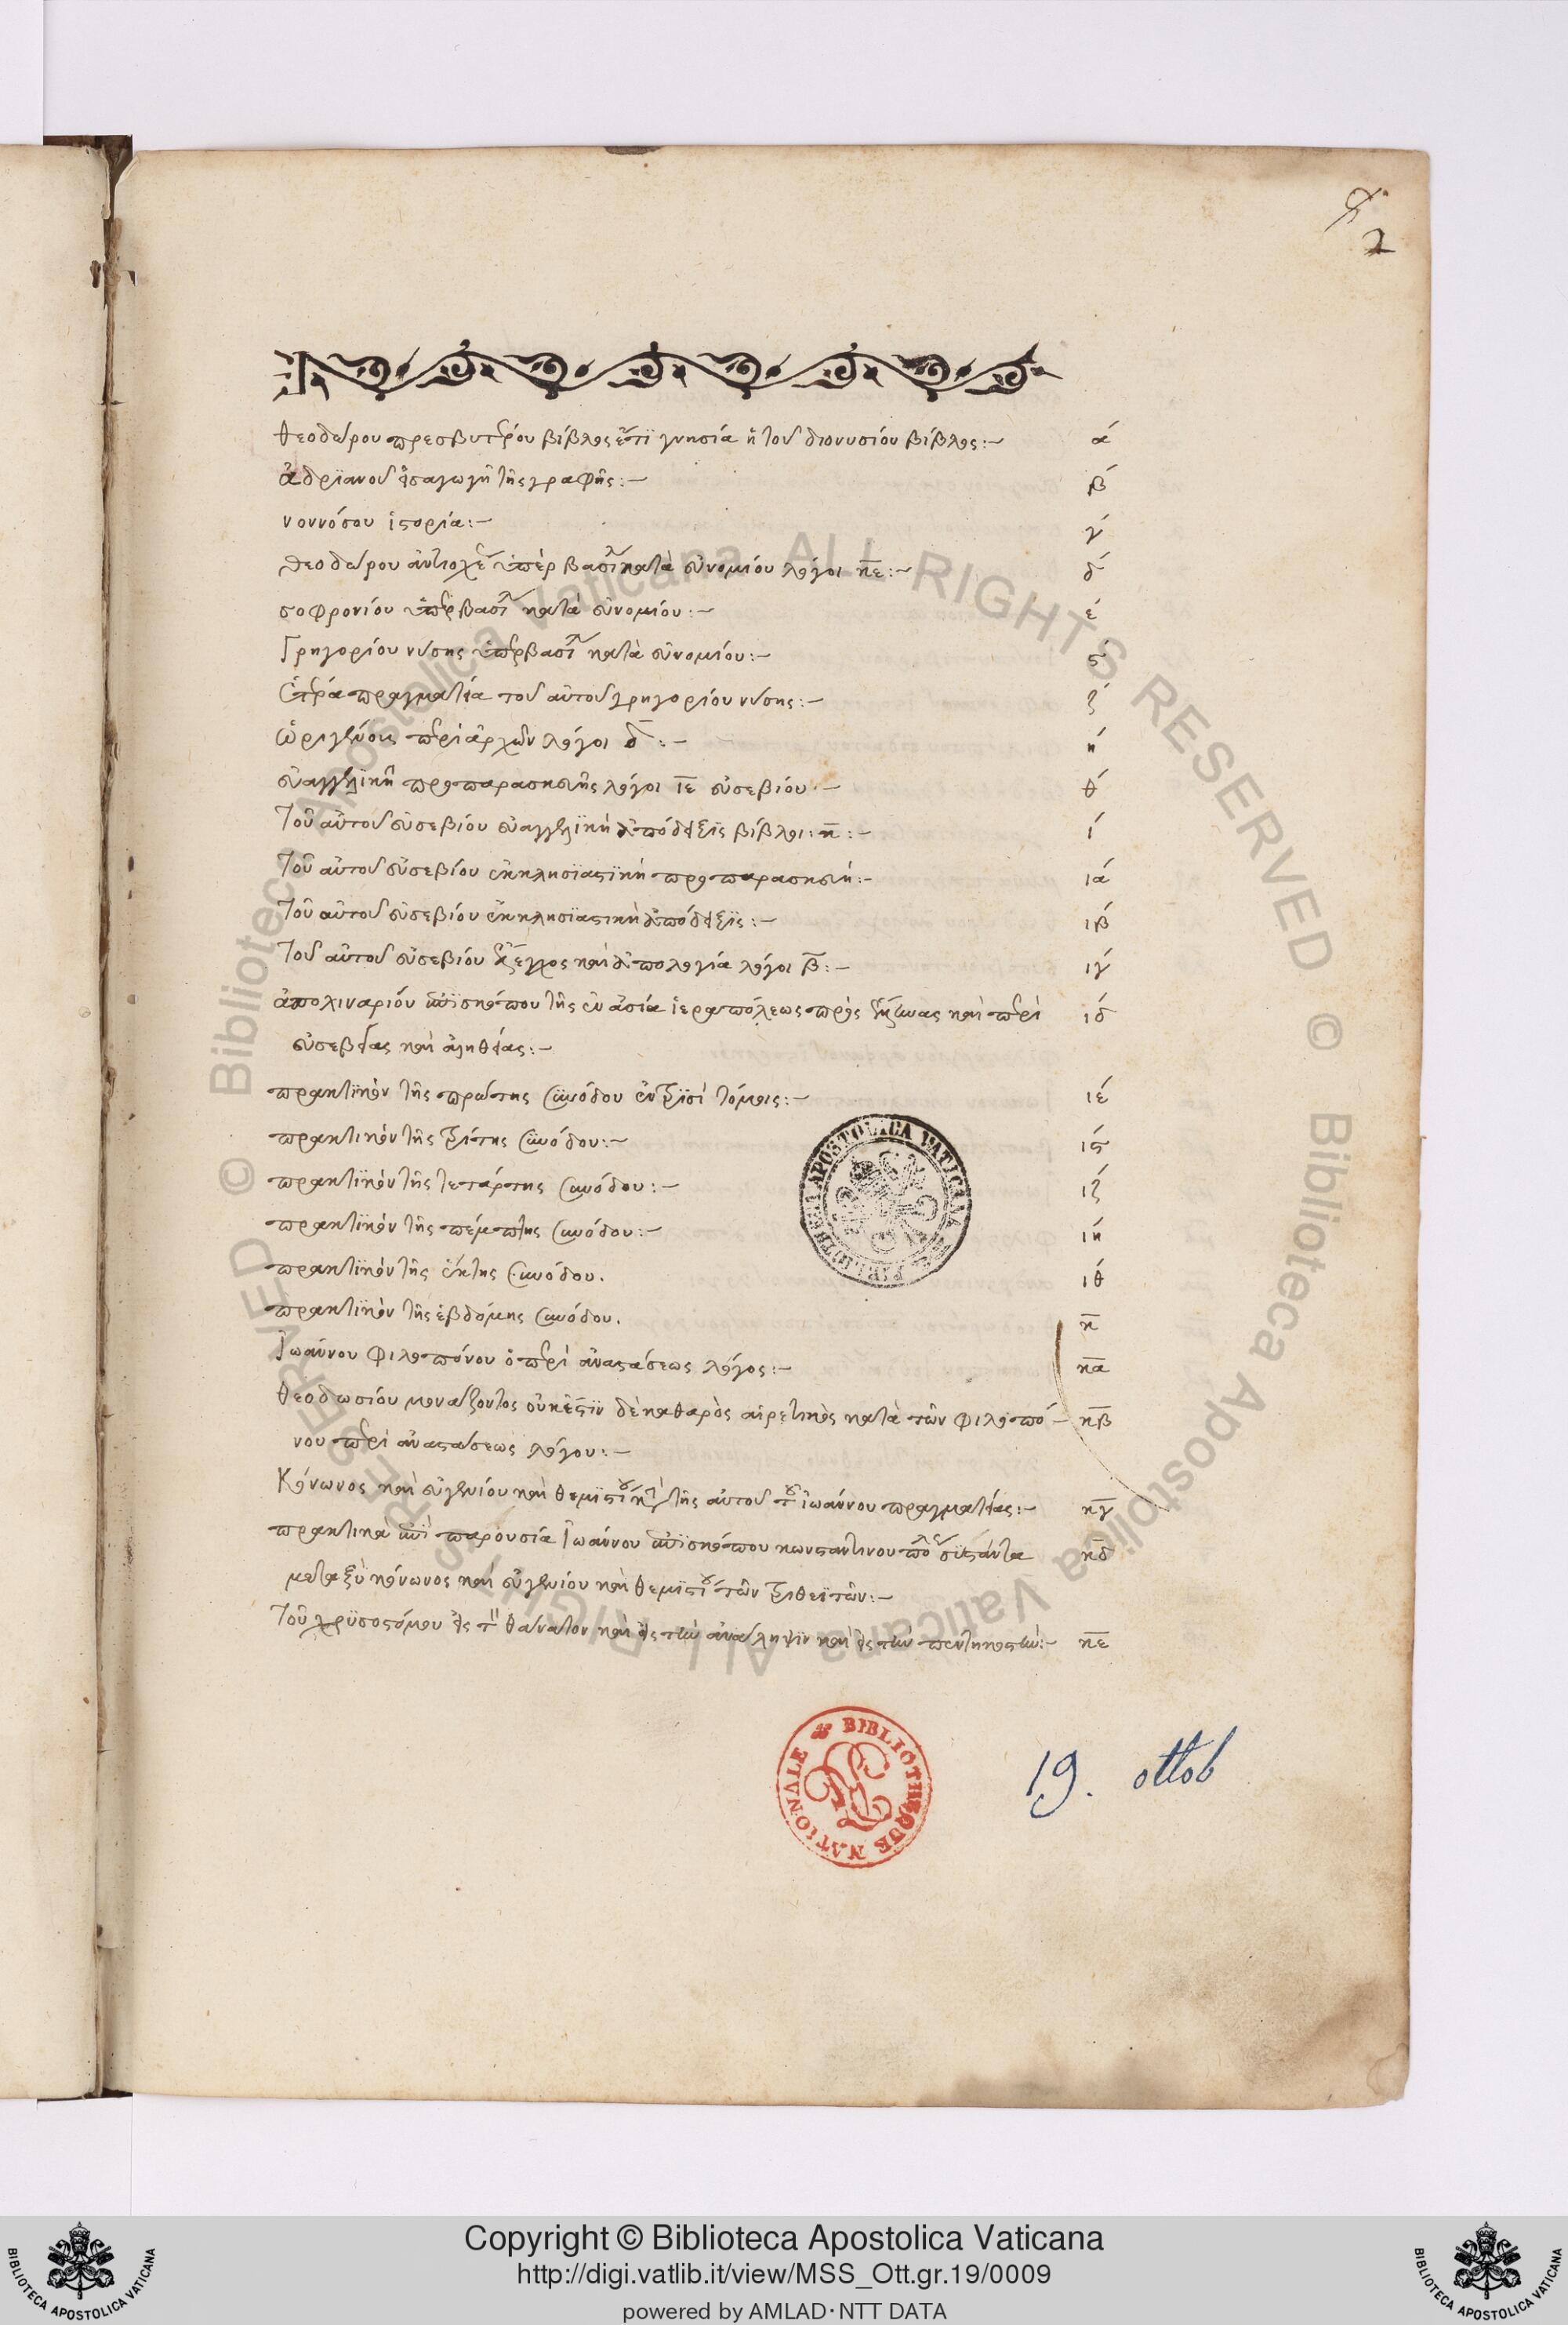 2
θεοδώρου πρεσβυτέρου βίβλος ὅτι γνησία ἡ τοῦ διονυσίου βίβλος:- ά
ἀδριανοῦ εἰσαγωγὴ τῆς γραφῆς:- β́
νοννόσου ἱστορία:- γ́
θεοδώρου ἀντιοχέ ὑπὲρ βασιλ κατὰ εὐνομίου λόγοι κε:- δ́
σοφρονίου ὑπὲρ βασιλ κατὰ εὐνομίου:- έ
Γρηγορίου νύσης ὑπὲρ βασιλ κατὰ εὐνομίου:- ϛ́
ἑτέρα πραγματεία τοῦ αὐτοῦ γρηγορίου νύσης:- ζ́
ὠριγένους περὶ ἀρχῶν λόγοι δ:- ή
εὐαγγελικῆ προπαρασκευῆς λόγοι ιε εὐσεβίου:- θ́
Τοῦ αὐτοῦ εὐσεβίου εὐαγγελικὴ ἀπόδειξις βίβλοι: κ:- ί
Τοῦ αὐτοῦ εὐσεβίου ἐκκλησιαστικὴ προπαρασκευή:- ιά
Τοῦ αὐτοῦ εὐσεβίου ἐκκλησιαστικὴ ἀπόδειξις:- ιβ́
Τοῦ αὐτοῦ εὐσεβίου ἔλεγχος καὶ ἀπολογία λόγοι β:- ιγ́
ἀπολιναρίου ἐπισκόπου τῆς ἐν ἀσία ἱεραπόλεως πρὸς ἕλληνας καὶ περὶ ιδ́
εὐσεβείας καὶ ἀληθείας:-
πρακτικὸν τῆς πρώτης συνόδου ἐν τρισὶ τόμοις:- ιέ
πρακτικὸν τῆς τρίτης συνόδου:- ιϛ́
πρακτικὸν τῆς τετάρτης συνόδου:- ιζ́
πρακτικὸν τῆς πέμπτης συνόδου:- ιή
πρακτικὸν τῆς ἕκτης συνόδου. ιθ́
πρακτικὸν τῆς ἑβδόμης συνόδου. κ
Ἰωάννου φιλοπόνου ὁ περὶ ἀναστάσεως λόγος:- κα
θεοδωσίου μονάζοντος οὐκ ἔστιν δὲ καθαρὸς αἱρετικὸς κατὰ τῶν φιλοπό- κβ
νου περὶ ἀναστάσεως λόγου:-
Κόνωνος καὶ εὐγενίου καὶ θεμιστίου κατὰ τῆς αὐτοῦ τοῦ ἰωάννου πραγματείας:- κγ
πρακτικὰ ἐπὶ παρουσία Ἰωάννου ἐπισκόπου κωνσταντινουπόλ συστάντα κδ
μεταξὺ κόνωνος καὶ εὐγενίου καὶ θεμιστίου τῶν τριθεϊτῶν:-
Τοῦ χρυσοστόμου εἰς τὸν θάνατον καὶ εἰς τὴν ἀνάληψιν καὶ εἰς τὴν πεντηκοστήν:- κε
BIBLIOTHECA APOSTOLICA VATICANA
BIBLIOTHEQUE NATIONALE
19. ottob
© Biblioteca Apostolica Vaticana ALL RIGHTS RESERVED © Biblioteca Apostolica Vaticana ALL RIGHTS RESERVED
Copyright © Biblioteca Apostolica Vaticana
http://digi.vatlib.it/view/MSS_Ott.gr.19/0009
powered by AMLAD·NTT DATA
BIBLIOTECA APOSTOLICA VATICANA
BIBLIOTECA APOSTOLICA VATICANA